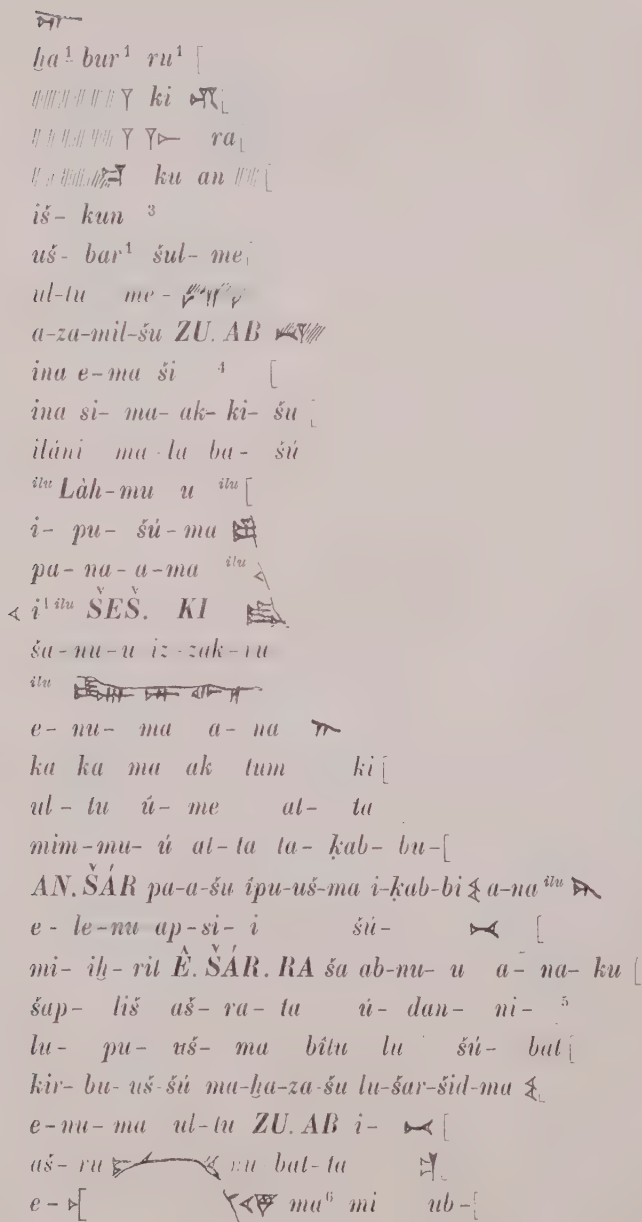 ḫa¹ bur¹ ru¹ [
𒁹 ki
𒁹 ra
ku an
iš- kun ³
uš- bar¹ šul- me
ul-tu me-
a-za-mil-šu ZU. AB
ina e-ma ši ⁴ [
ina si- ma- ak- ki- šu [
ilâni ma-la ba- šú
ilu Làḫ-mu u ilu [
i- pu- šú- ma
pu- na- a-ma ilu
i¹ ilu ŠEŠ. KI
ša-nu-u iz-zak-ru
ilu
e- nu- ma a- na
ka ka ma ak tum ki [
ul- tu ú- me at- ta
mim-mu- ú at-ta ta- ḳab- bu-[
AN. ŠÁR pa-a-šu îpu-uš-ma i-ḳab-bi a-na ilu
e- le-nu ap-si- i šú- [
mi- iḫ- rit Ê. ŠÁR. RA ša ab-nu- u a- na- ku [
šap- liš aš- ra- ta ú- dan- ni- ⁵
lu- pu- uš- ma bîtu lu šú- bat [
kir- bu- uš-šú ma-ḫa-za-šu lu-šar-šid-ma
e-nu- ma ul-tu ZU. AB i- [
aš- ru nu bat-ta
e- [ ma⁶ mi ub-[